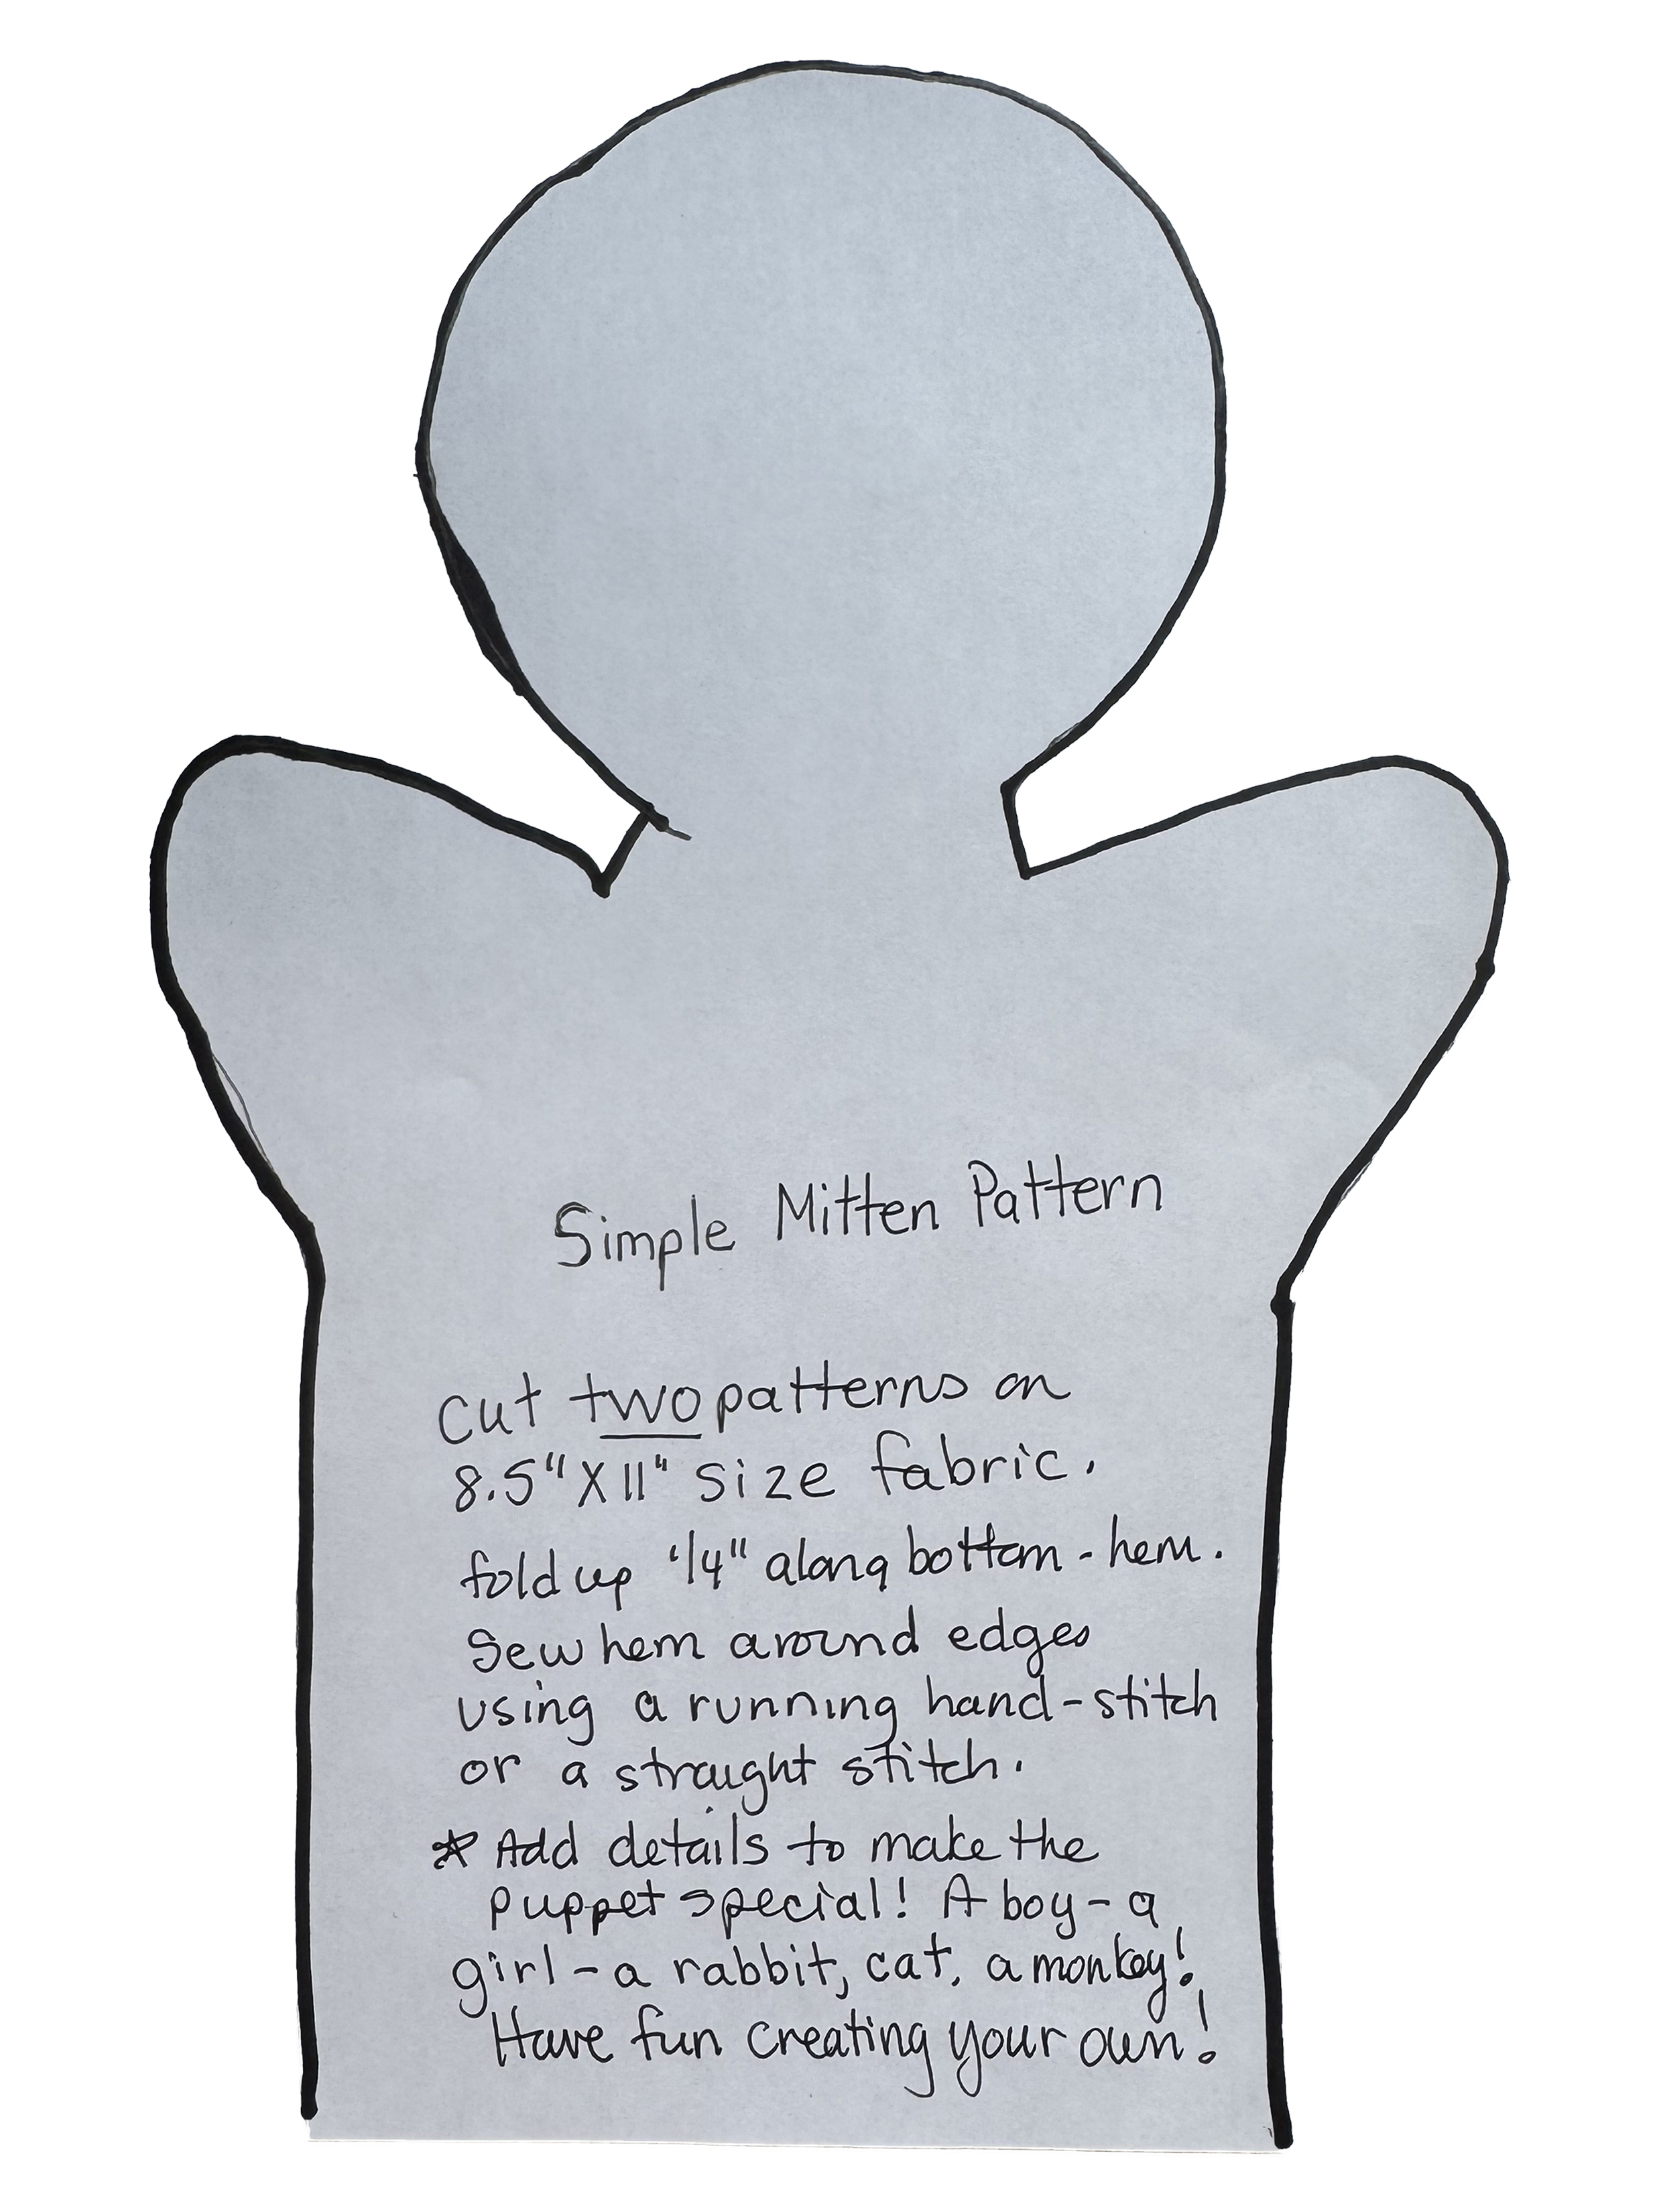 Simple Mitten Pattern
Cut two patterns on
8.5" X 11" size fabric.
fold up 1/4" along bottom - hem.
Sew hem around edges
using a running hand-stitch
or a straight stitch.
* Add details to make the
puppet special! A boy - a
girl - a rabbit, cat, a monkey!
Have fun creating your own!